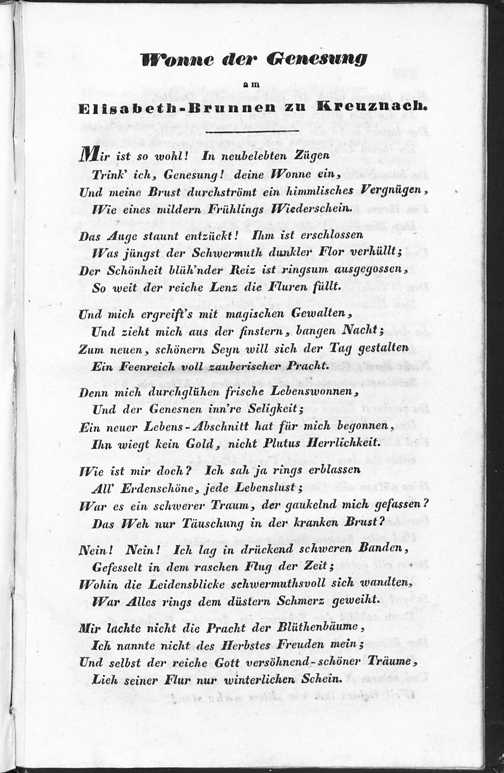 Wonne der Genesung
am
Elisabeth-Brunnen zu Kreuznach.
Mir ist so wohl! In neubelebten Zügen
Trink' ich, Genesung! deine Wonne ein,
Und meine Brust durchströmt ein himmlisches Vergnügen,
Wie eines mildern Frühlings Wiederschein.
Das Auge staunt entzückt! Ihm ist erschlossen
Was jüngst der Schwermuth dunkler Flor verhüllt;
Der Schönheit blüh'nder Reiz ist ringsum ausgegossen,
So weit der reiche Lenz die Fluren füllt.
Und mich ergreift's mit magischen Gewalten,
Und zieht mich aus der finstern, bangen Nacht;
Zum neuen, schönern Seyn will sich der Tag gestalten
Ein Feenreich voll zauberischer Pracht.
Denn mich durchglühen frische Lebenswonnen,
Und der Genesnen inn're Seligkeit;
Ein neuer Lebens-Abschnitt hat für mich begonnen,
Ihn wiegt kein Gold, nicht Plutus Herrlichkeit.
Wie ist mir doch? Ich sah ja rings erblassen
All' Erdenschöne, jede Lebenslust;
War es ein schwerer Traum, der gaukelnd mich gefassen?
Das Weh nur Täuschung in der kranken Brust?
Nein! Nein! Ich lag in drückend schweren Banden,
Gefesselt in dem raschen Flug der Zeit;
Wohin die Leidensblicke schwermuthsvoll sich wandten,
War Alles rings dem düstern Schmerz geweiht.
Mir lachte nicht die Pracht der Blüthenbäume,
Ich nannte nicht des Herbstes Freuden mein;
Und selbst der reiche Gott versöhnend-schöner Träume,
Lieh seiner Flur nur winterlichen Schein.